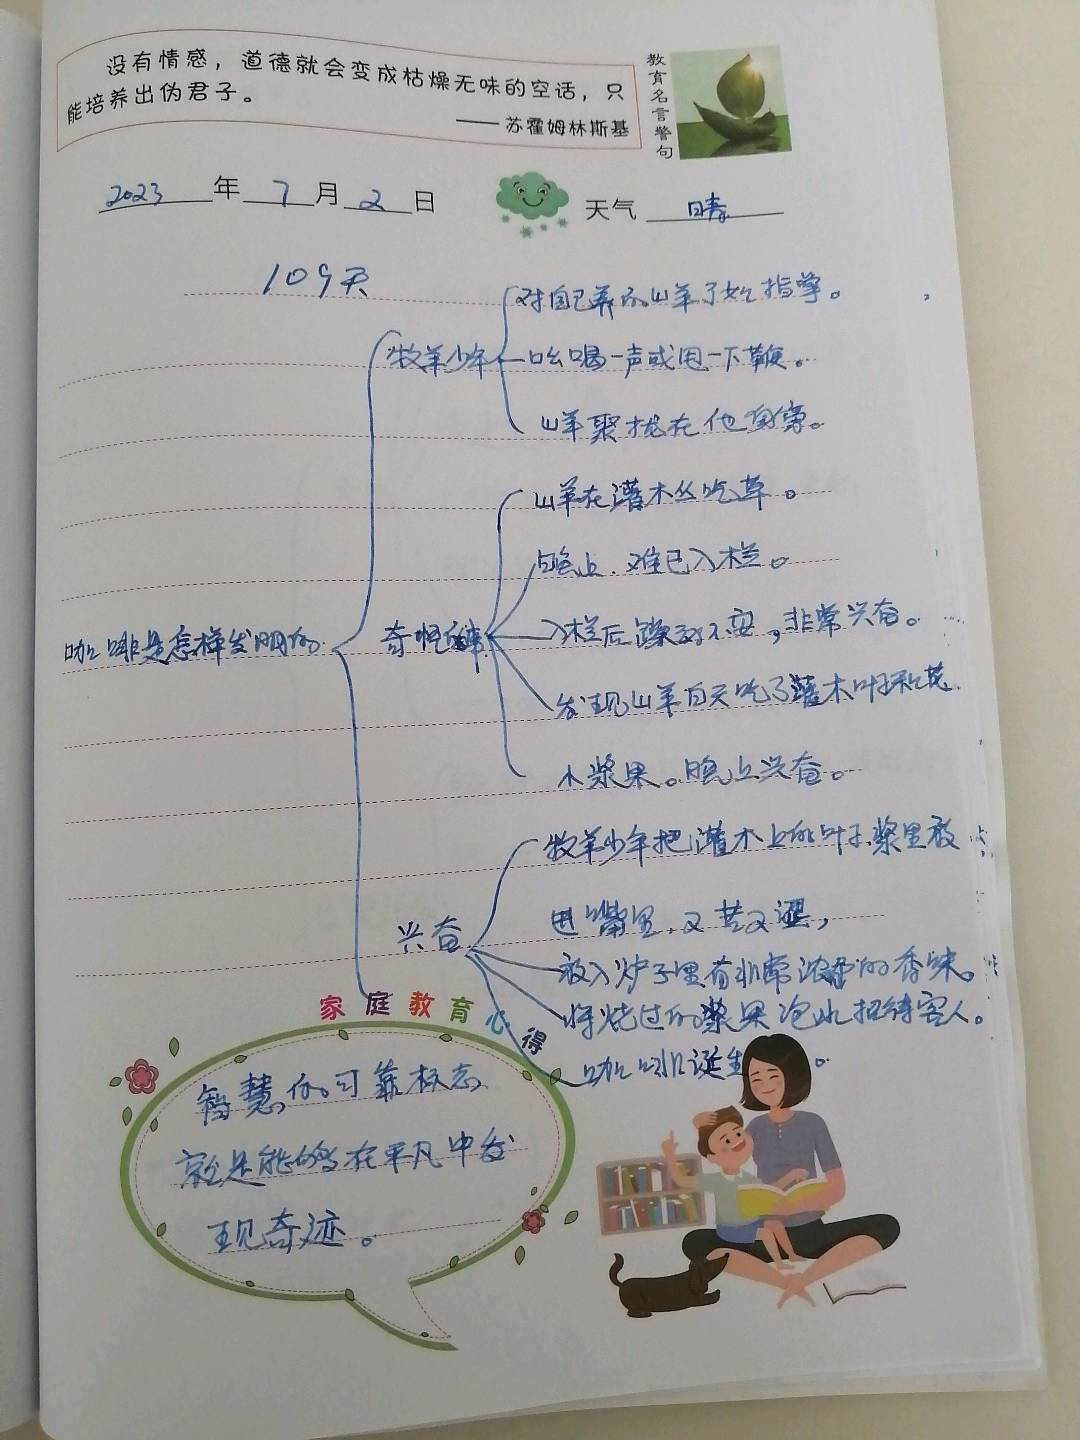 没有情感，道德就会变成枯燥无味的空话，只
能培养出伪君子。
——苏霍姆林斯基
教育名言警句
2023年7月2日
天气 晴
109天
对自己养的山羊了如指掌。
牧羊少年
吆喝一声或甩一下鞭。
山羊聚拢在他身旁。
山羊在灌木丛吃草。
晚上，难已入栏。
咖啡是怎样发明的
奇怪的事
入栏后躁动不安，非常兴奋。
发现山羊白天吃了灌木叶子和花
小浆果。晚上兴奋。
牧羊少年把灌木上的叶子、浆果放
兴奋
进嘴里，又苦又涩，
放入炉子里有非常浓香的香味。
将烧过的浆果泡水招待客人。
咖啡诞生。
家庭教育心得
智慧的可靠标志
就是能够在平凡中发
现奇迹。